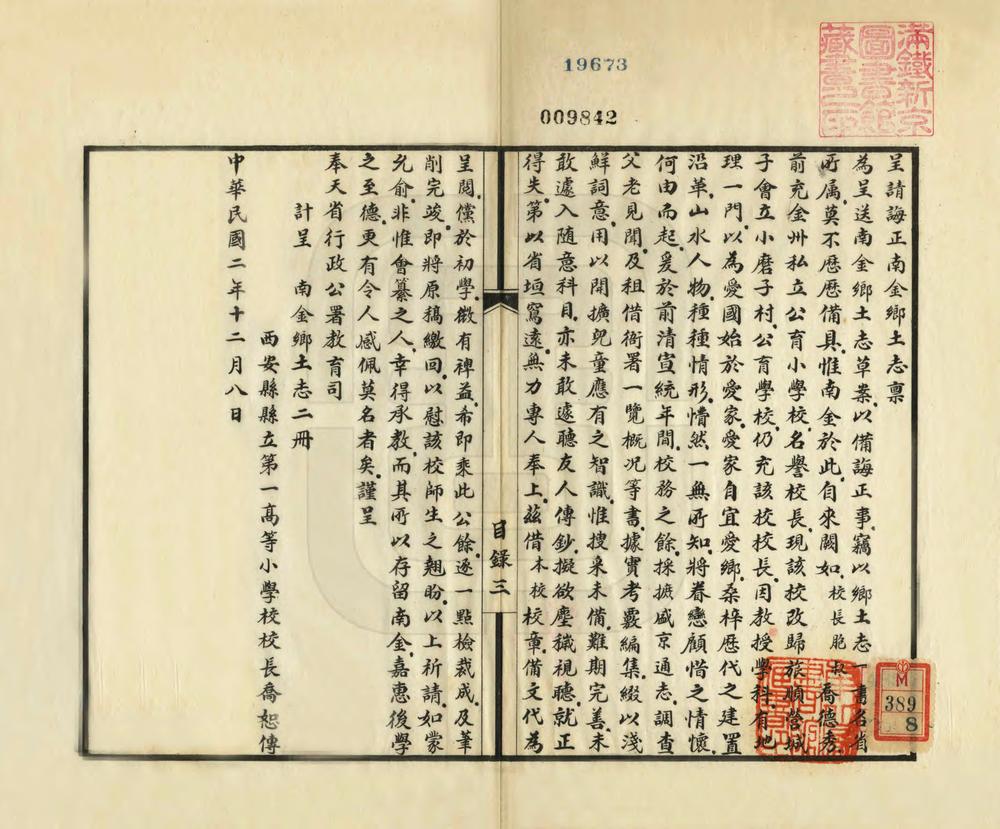 滿鐵新京
圖書館
藏書之印
19673
009842
呈請誨正南金鄉土志禀
為呈送南金鄉土志草案以備誨正事竊以鄉土志一書名省
所属莫不歴歴備具惟南金於此自来闕如校長胞叔喬德秀
前充金州私立公育小學校名譽校長現該校改歸旅順營城
子會立小磨子村公育學校仍充該校校長因教授學科有地
理一門以為愛國始於愛家愛家自宜愛鄉桑梓歴代之建置
沿革山水人物種種情形懵然一無所知將眷戀顧惜之情懷
何由而起爰於前清宣統年間校務之餘採摭盛京通志調查
父老見聞及租借衙署一覽概况等書據實考覈編集綴以淺
鮮詞意用以開擴兒童應有之智識惟搜采未備難期完善未
敢遽入随意科目亦未敢遽聽友人傳鈔擬欲塵穢視聽就正
得失第以省垣窵遠無力專人奉上茲借本校校章備文代為
目錄三
呈閱儻於初學微有裨益希即乘此公餘逐一點檢裁成及筆
削完竣即將原稿繳回以慰該校師生之翹盼以上祈請如蒙
允俞非惟會纂之人幸得承教而其所以存留南金嘉惠後學
之至德更有令人感佩莫名者矣謹呈
奉天省行政公署教育司
計呈 南金鄉土志二冊
西安縣縣立第一高等小學校校長喬恕傳
中華民國二年十二月八日
M
389
8